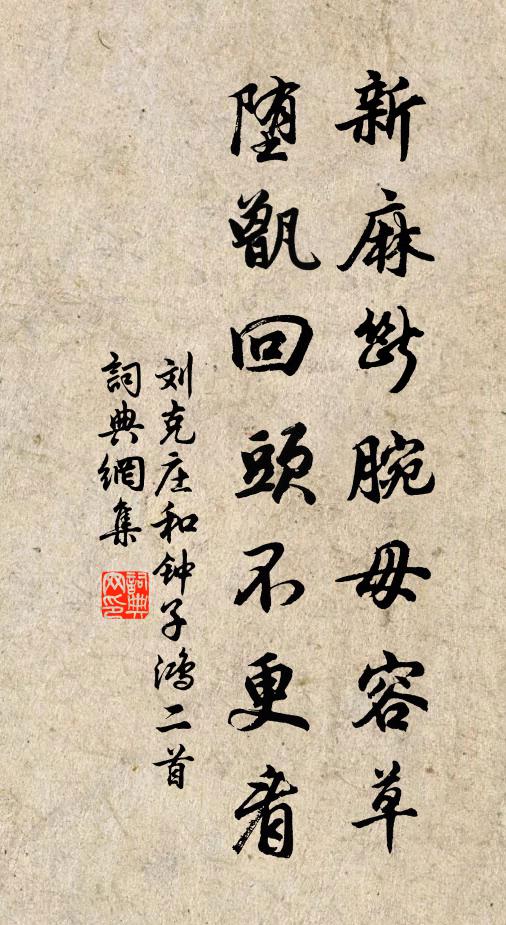 新麻斷腕毋容草
堕甑回頭不更看
刘克庄和钟子鴻二首
詞典網集
詞典網印